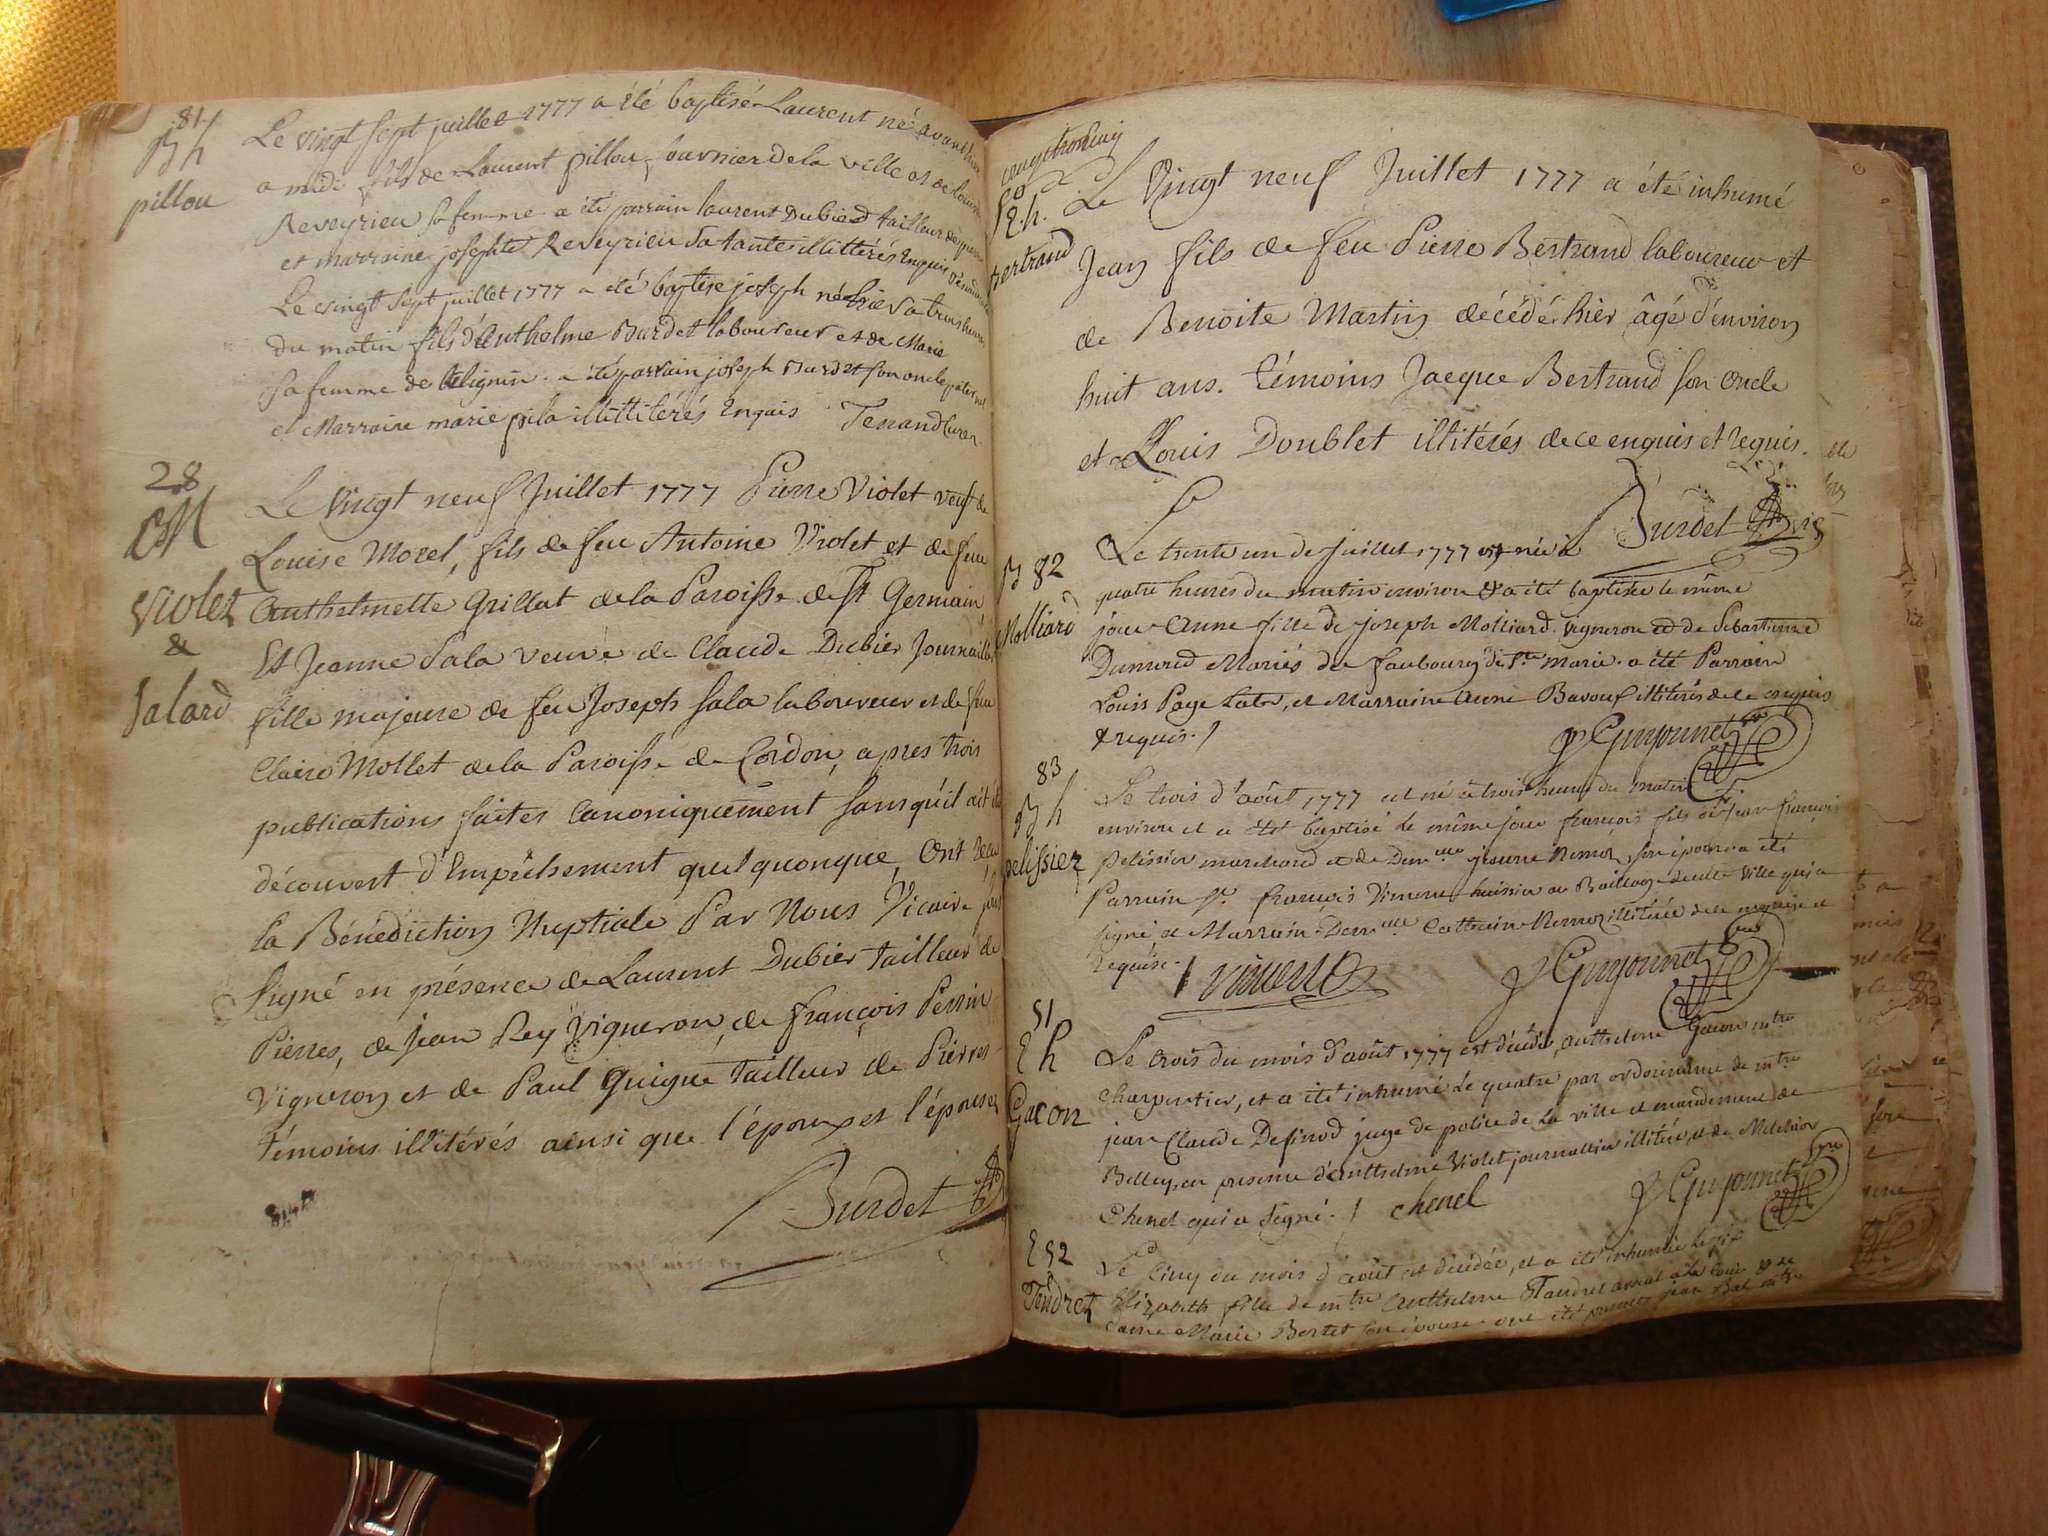 81
Bh
pillou
Le vingt sept juillet 1777 a été baptisé Laurent né avant hier
a midi fils de Laurent pillou, journier de la ville et de
Reveyrieu sa femme a été parrain laurent Dubier tailleur de pierre
et marraine josephte Reveyrieu sa tante illittérés Enquis
Le vingt sept juillet 1777 a été baptisé joseph né hier a trois heures
du matin fils d'Anthelme Burdet laboureur et de Marie
sa femme de Bélignin. a été parrain joseph Burdet son oncle paternel
et Marraine marie pila illittitérés Enquis Tenand Curé
28
M
Violet
&
Salard
Le Vingt neuf Juillet 1777 Pierre Violet veuf de
Louise Morel, fils de feu Antoine Violet et de feue
Anthelmette Grillat de la Paroisse de St Germain
Et Jeanne Sala veuve de Claude Dubier Journailler
fille majeure de feu Joseph Sala laboureur et de feue
Claire Mollet de la Paroisse de Cordon, apres trois
publications faites Canoniquement sans qu'il ait été
découvert d'Empêchement quelquonque, Ont reçu
la Bénédiction Nuptiale Par Nous Vicaire
Signé en présence de Laurent Dubier tailleur de
Pierres, de Jean Rey Vigneron, de françois Perrin
Vigneron et de Paul Guigue tailleur de Pierres
témoins illitérés ainsi que l'époux et l'épouse
Burdet
50
E.h.
Bertrand
Le Vingt neuf Juillet 1777 a été inhumé
Jean fils de feu Pierre Bertrand laboureur et
de Benoite Martin décédé hier âgé d'environ
huit ans. témoins Jacque Bertrand son oncle
et Louis Doublet illitérés de ce enquis et requis.
Burdet vic
B 82
Molliard
Le trente un de Juillet 1777 est née à
quatre heures du matin environ & a été baptisée le même
jour Anne fille de joseph Molliard vigneron et de Sebastienne
Dumured Mariés du fauboury de Ste marie. a été Parrain
Louis Page, et Marraine Anne Bavouf illitérés de ce enquis
& requis. /
Guyonnet
83
Bh
pelissier
Le trois d'août 1777 est né à trois heures du matin
environ et a été baptisé le même jour françois fils de jean françois
pelissier marchand et de Demlle jeanne Remoz son épouse a été
Parrain Sr françois Vimerne huissier au Bailliage de cette ville qui a
signé et Marraine Demlle Catherine Remoz illitérée de ce enquise et
requise. /
Guyonnet
51
Eh
Gacon
Le trois du mois d'août 1777 est décédé, anthelme Gacon mtre
charpentier, et a été inhumé le quatre par ordonnance de mtre
jean Claude Desinod juge de police de la ville et mandement de
Belley, en presence d'anthelme Violet journallier illitéré, et de Melchior
Chenel qui a signé. / Chenel
Guyonnet
E 52
Tendret
Le Cinq du mois d'août est décédée, et a été inhumée le six
Elizabeth fille de mtre Anthelme Tandret avocat a la Cour et de
dame Marie Bertet son épouse ont été presents jean Bal